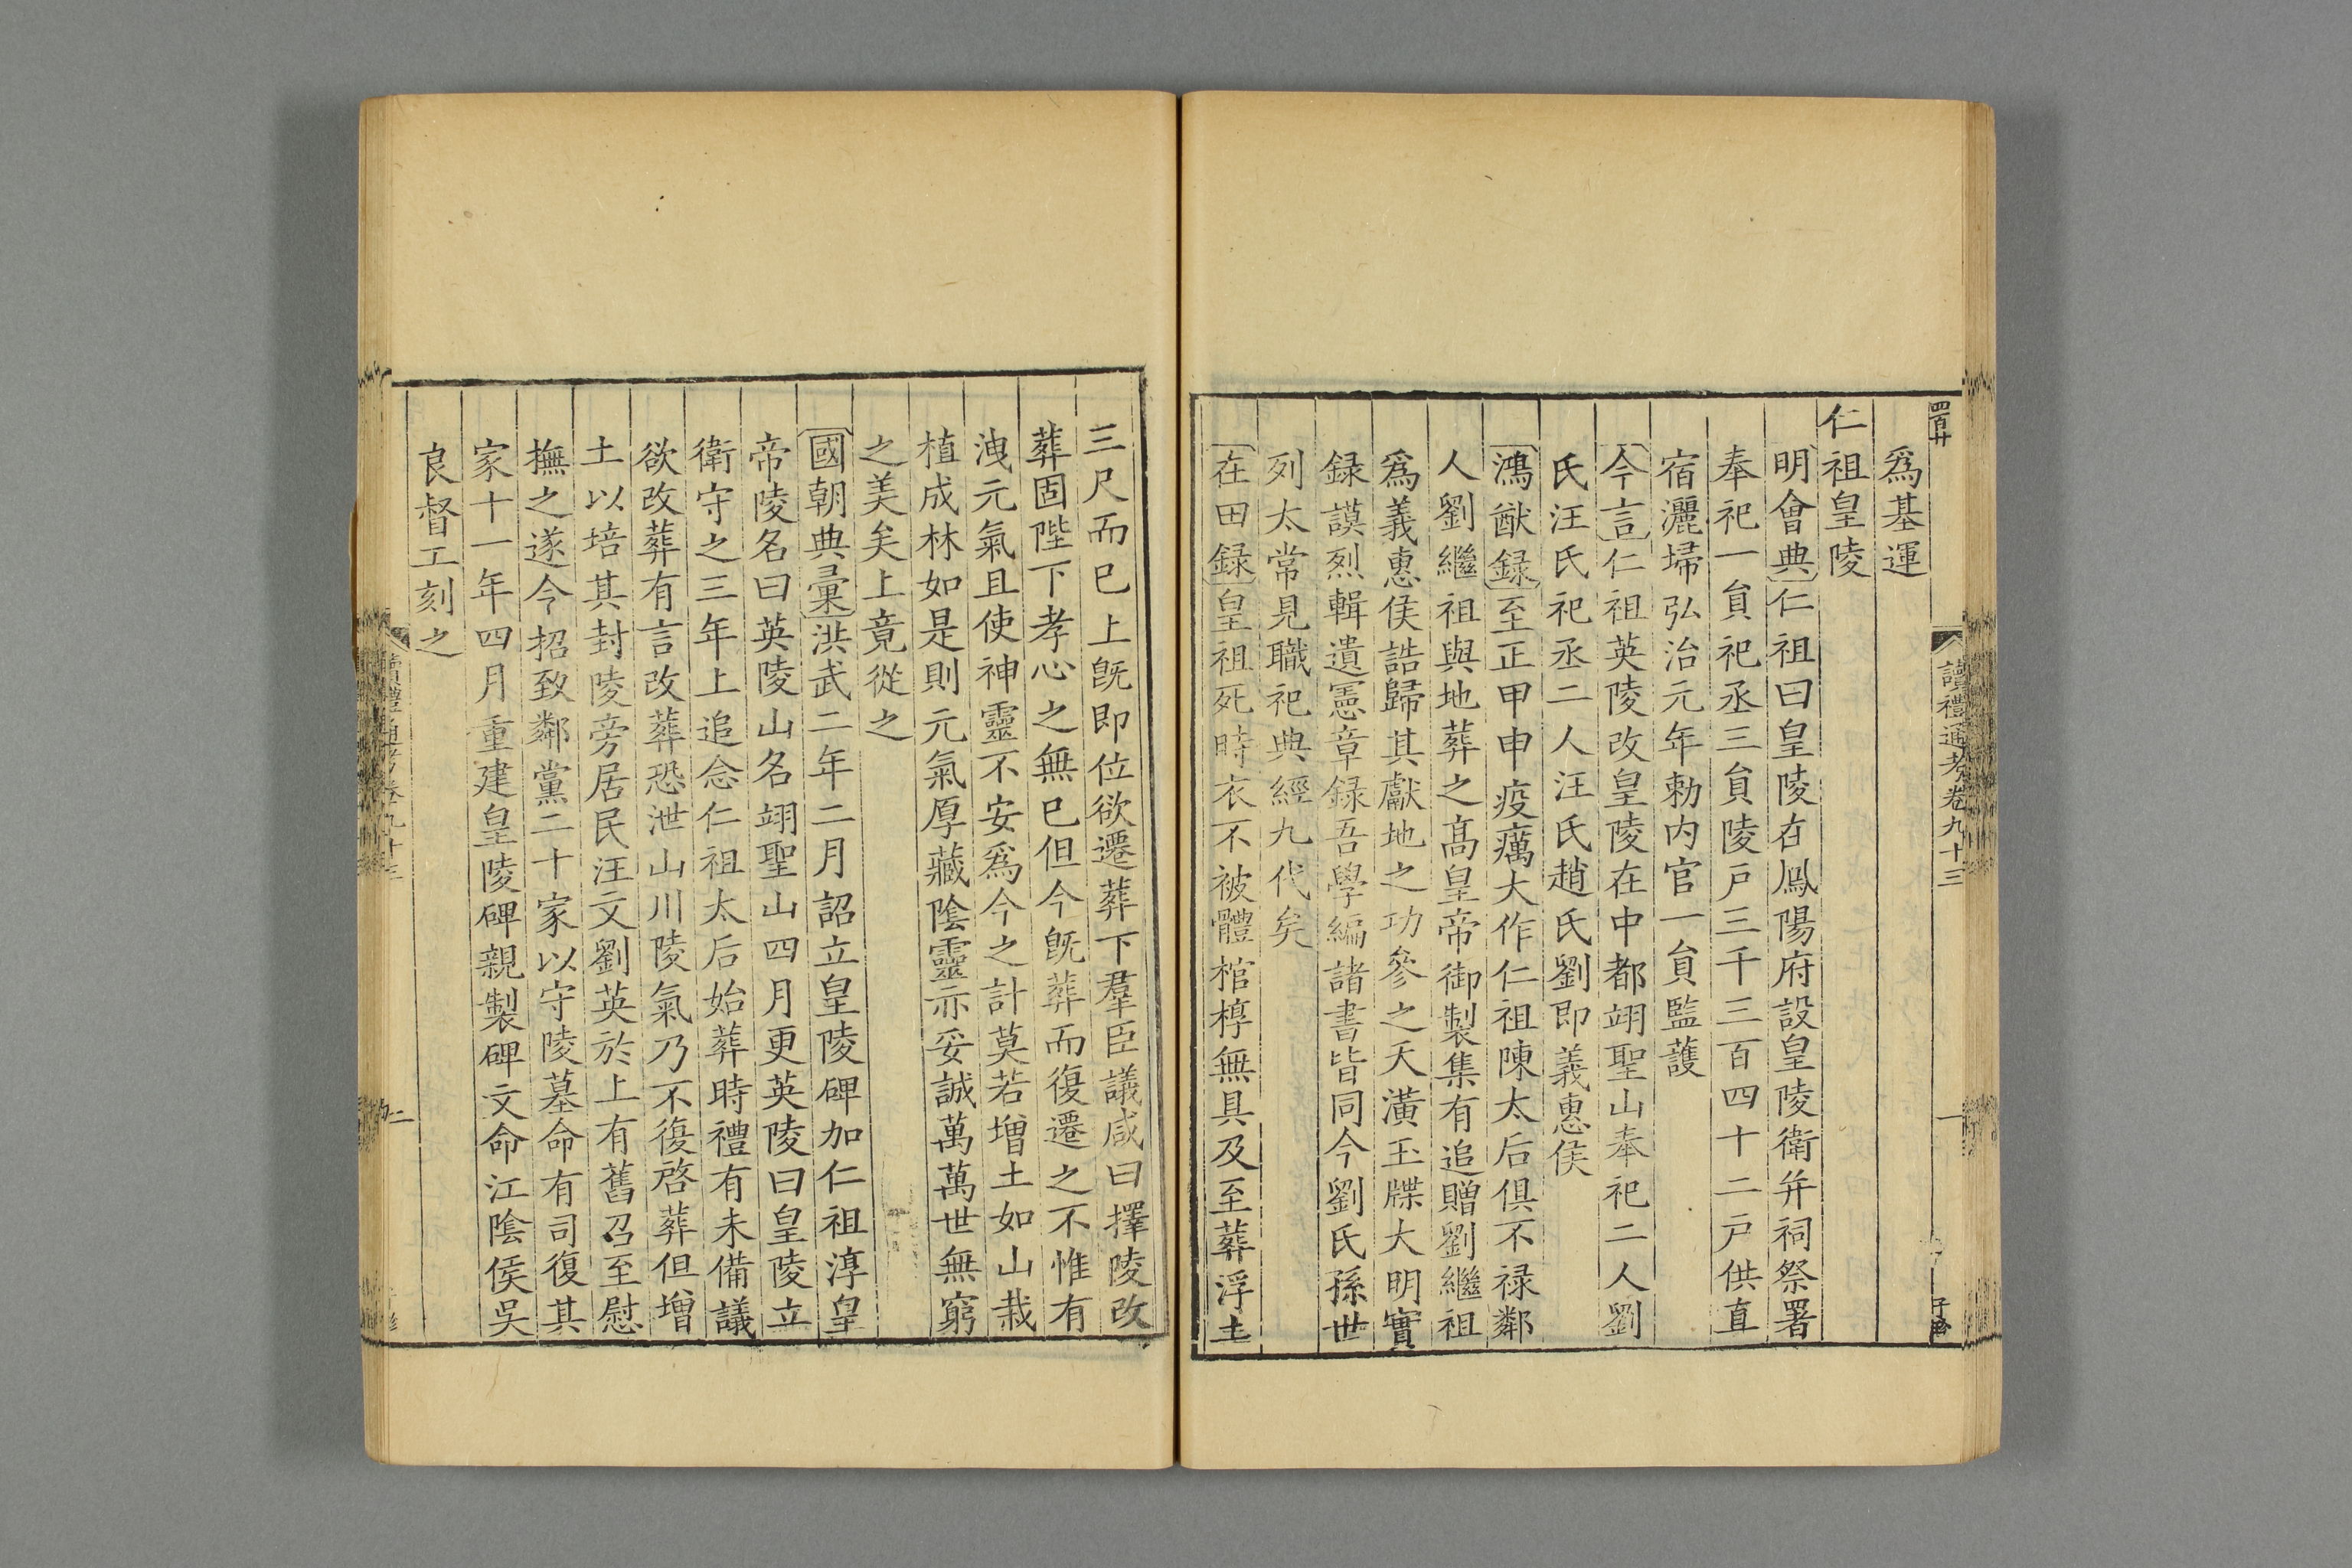 四百廿
讀禮通考卷九十三
一
爲基運
仁祖皇陵
明會典仁祖曰皇陵在鳳陽府設皇陵衛并祠祭署
奉祀一貟祀丞三貟陵户三千三百四十二户供直
宿灑埽弘治元年勅内官一貟監護
今言仁祖英陵改皇陵在中都翊聖山奉祀二人劉
氏汪氏祀丞二人汪氏趙氏劉即義惠侯
鴻猷録至正甲申疫癘大作仁祖陳太后俱不禄鄰
人劉繼祖與地葬之高皇帝御製集有追贈劉繼祖
爲義惠侯誥歸其獻地之功參之天潢玉牒大明實
録謨烈輯遺憲章録吾學編諸書皆同今劉氏孫世
列太常見職祀典經九代矣
在田録皇祖死時衣不被體棺椁無具及至葬浮土
三尺而已上旣即位欲遷葬下羣臣議咸曰擇陵改
葬固陛下孝心之無已但今旣葬而復遷之不惟有
洩元氣且使神靈不安爲今之計莫若增土如山栽
植成林如是則元氣厚藏陰靈亦妥誠萬萬世無窮
之美矣上竟從之
國朝典彙洪武二年二月詔立皇陵碑加仁祖淳皇
帝陵名曰英陵山名翊聖山四月更英陵曰皇陵立
衛守之三年上追念仁祖太后始葬時禮有未備議
欲改葬有言改葬恐泄山川陵氣乃不復啓葬但增
土以培其封陵旁居民汪文劉英於上有舊召至慰
撫之遂令招致鄰黨二十家以守陵墓命有司復其
家十一年四月重建皇陵碑親製碑文命江陰侯吳
良督工刻之
讀禮通考卷九十三
二